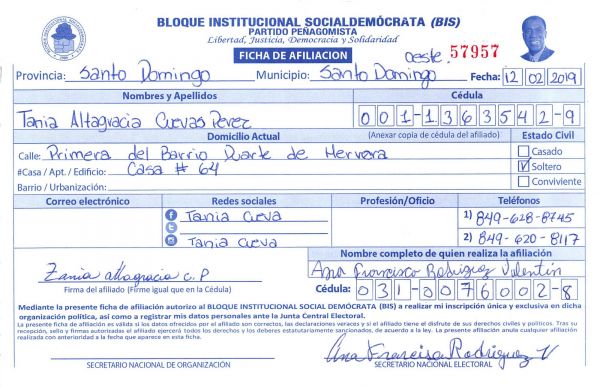 BLOQUE INSTITUCIONAL SOCIALDEMÓCRATA (BIS)
PARTIDO PEÑAGOMISTA
Libertad, Justicia, Democracia y Solidaridad
FICHA DE AFILIACION
oeste. 57957
Provincia: Santo Domingo Municipio: Santo Domingo Fecha: 12 02 2019
Nombres y Apellidos Cédula
Tania Altagracia Cuevas Perez 001-1363542-9
Domicilio Actual (Anexar copia de cédula del afiliado) Estado Civil
Calle: Primera del Barrio Duarte de Herrera Casado
#Casa / Apt. / Edificio: Casa # 64 Soltero
Barrio / Urbanización: Conviviente
Correo electrónico Redes sociales Profesión/Oficio Teléfonos
Tania Cueva 1) 849-628-8745
Tania Cueva 2) 849-620-8117
Nombre completo de quien realiza la afiliación
Tania altagracia c. P Ana Francisco Rodriguez Valentin
Firma del afiliado (Firme igual que en la Cédula) Cédula: 031-0076002-8
Mediante la presente ficha de afiliación autorizo al BLOQUE INSTITUCIONAL SOCIAL DEMÓCRATA (BIS) a realizar mi inscripción única y exclusiva en dicha
organización política, así como a registrar mis datos personales ante la Junta Central Electoral.
La presente ficha de afiliación es válida si los datos ofrecidos por el afiliado son correctos, las declaraciones veraces y si el afiliado tiene el disfrute de sus derechos civiles y políticos. Tras su
recepción, sello y firmas autorizadas el afiliado ejercerá todos los derechos y los deberes estatutariamente sancionados, de acuerdo a la ley. La presente afiliación anula cualquier afiliación
realizada con anterioridad a la fecha que aparece en esta ficha.
Ana Francisca Rodriguez V
SECRETARIO NACIONAL DE ORGANIZACIÓN SECRETARIO NACIONAL ELECTORAL